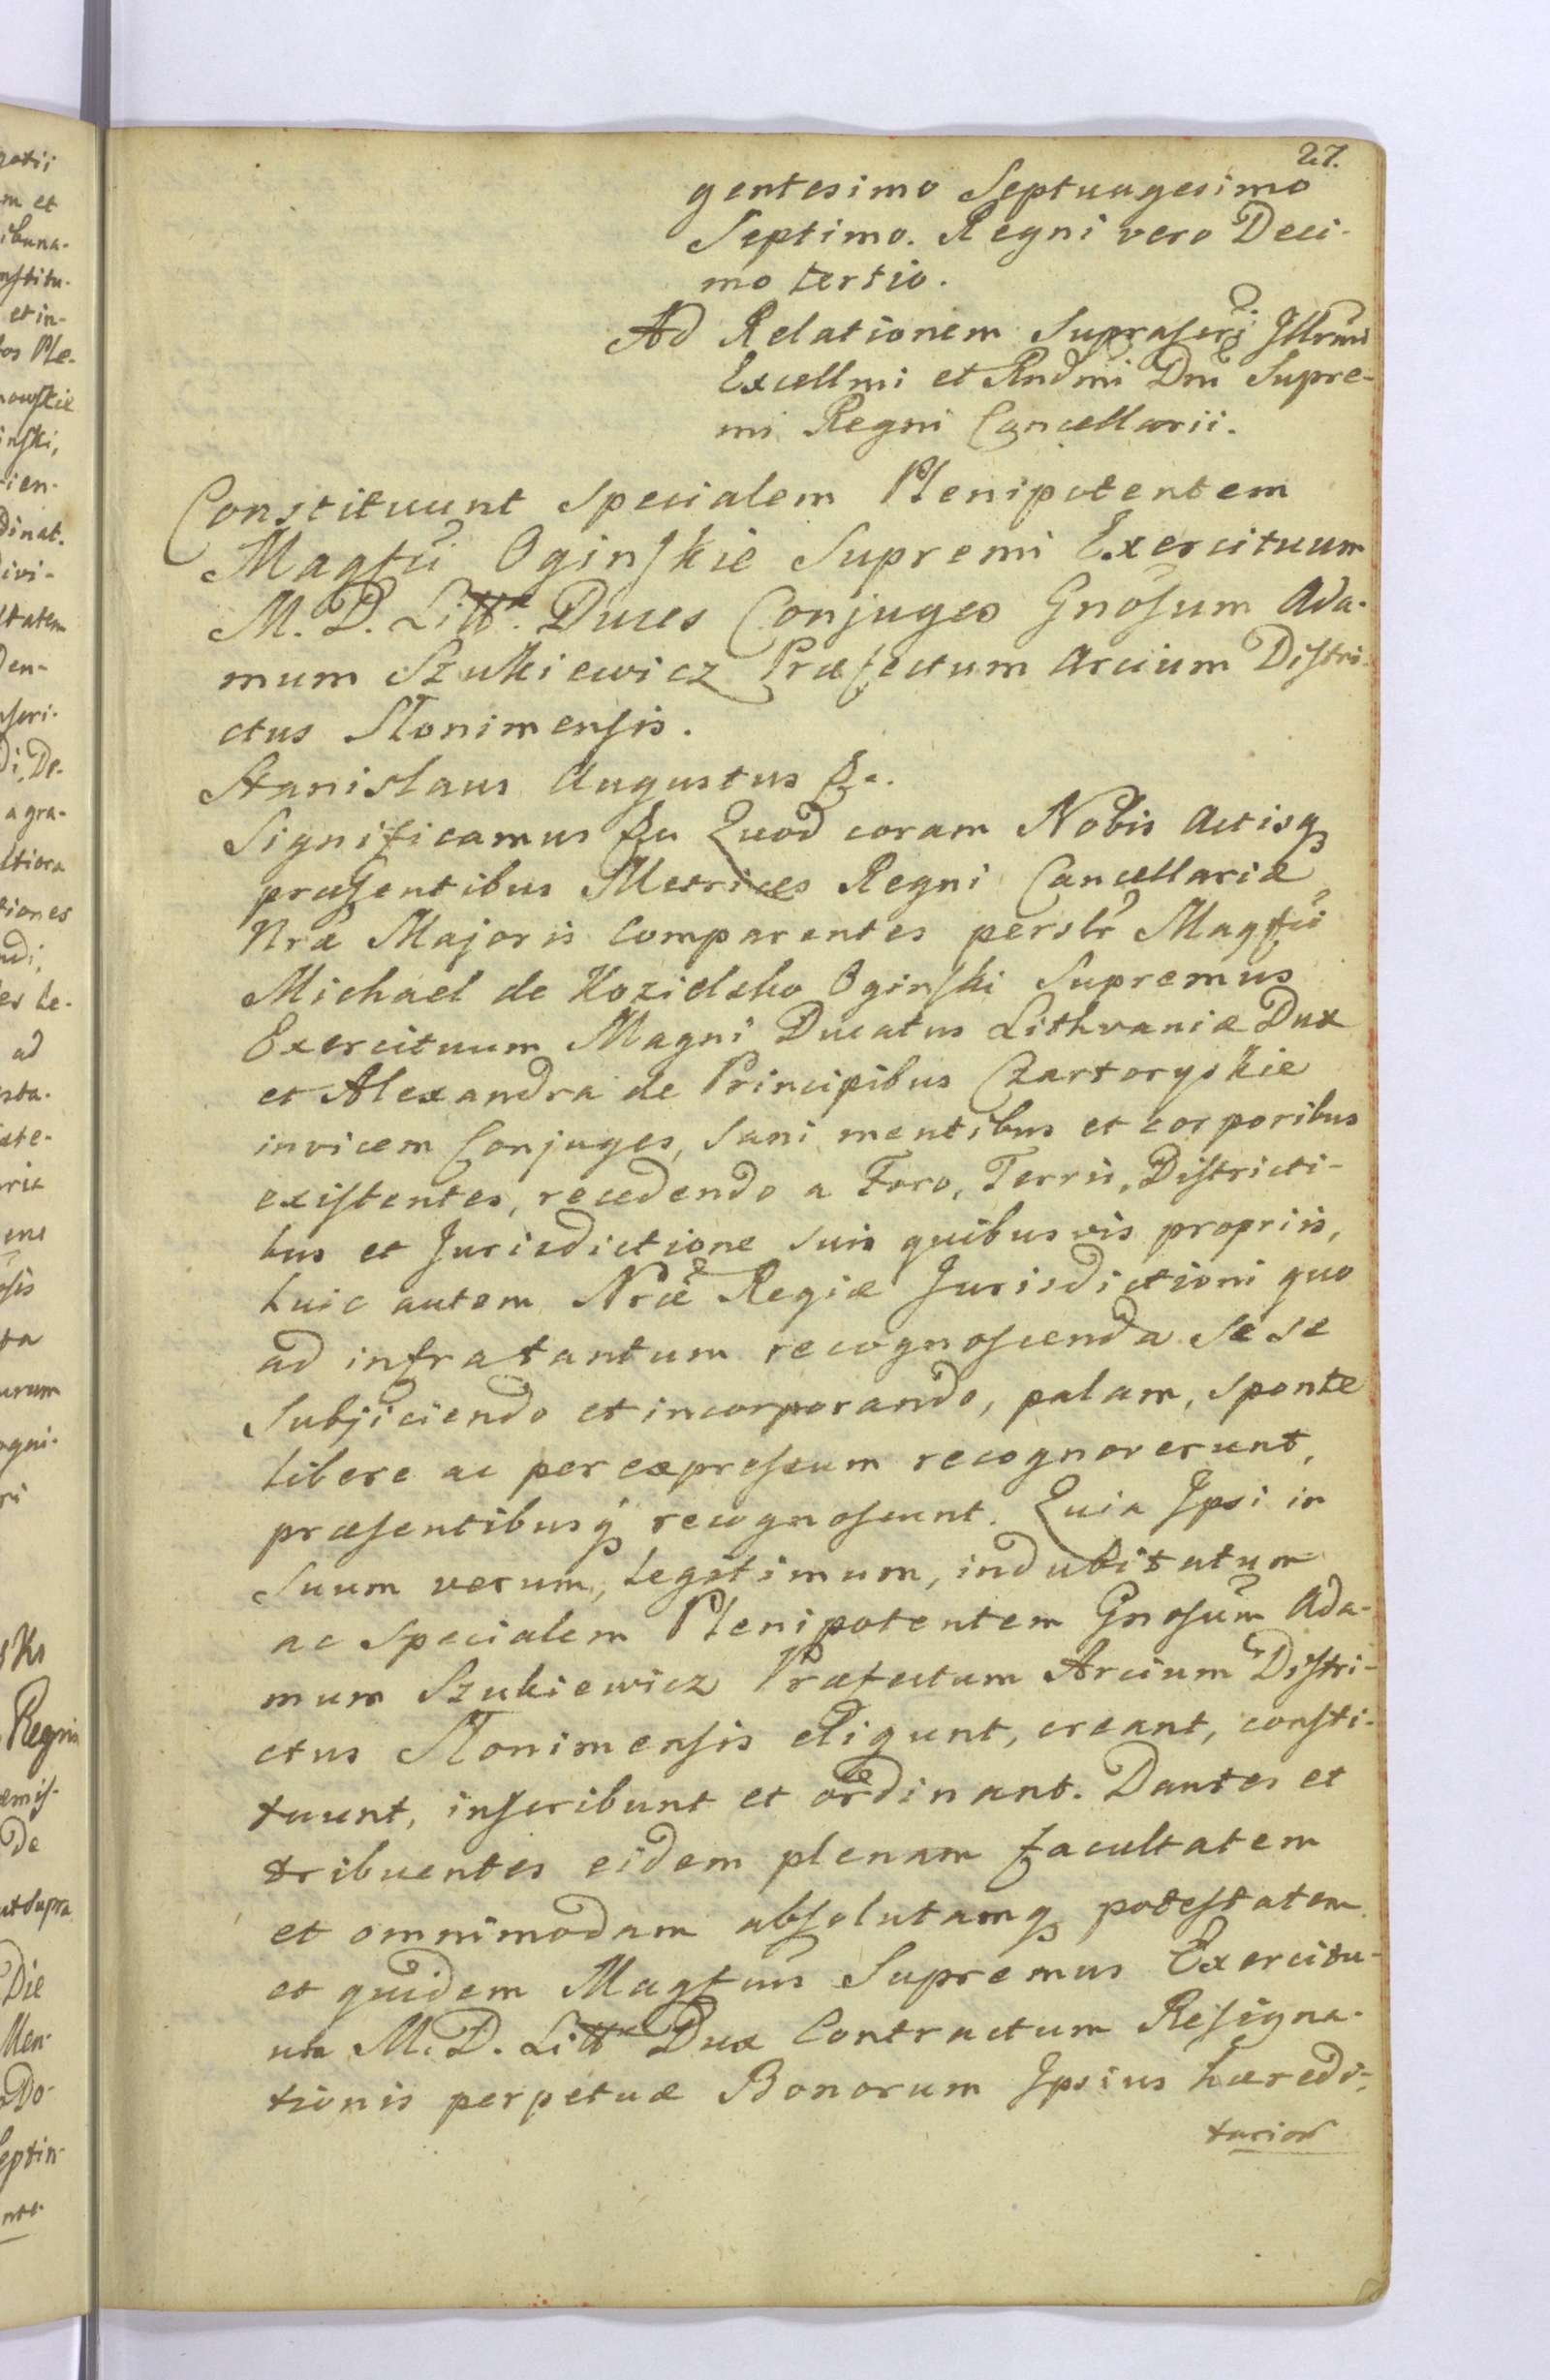 27.
gentesimo Septuagesimo
Septimo. Regni vero Deci-
mo tertio.
Ad Relationem Suprascri Illrmi
Excellmi et Rndmi Dni Supre-
mi Regni Cancellarii.
Constituunt Specialem Plenipotentem
Magfci Oginskie Supremi Exercituum
M. D. Litt. Duces Conjuges Gnosum Ada-
mum Szukiewicz Præfectum Arcium Distri-
ctus Slonimensis.
Stanislaus Augustus &c.
Significamus &c Quod coram Nobis Actisq
præsentibus Metrices Regni Cancellariæ
Nræ Majoris Comparentes perslr Magfci
Michael de Kozielsko Oginski Supremus
Exercituum Magni Ducatus Lithvaniæ Dux
et Alexandra de Principibus Czartoryskie
invicem Conjuges, Sani mentibus et corporibus
existentes, recedendo a Foro, Terris, Districti-
bus et Jurisdictione suis quibusvis propriis,
huic autem Nræ Regiæ Jurisdictioni quo
ad infratantum recognoscenda sese
Subjiciendo et incorporando, palam, sponte
libere ac per expressum recognoverunt,
præsentibusq recognoscunt. Quia Ipsi in
Suum verum, legitimum, indubitatum
ac Specialem Plenipotentem Gnosum Ada-
mum Szukiewicz Præfectum Arcium Distri-
ctus Slonimensis eligunt, creant, consti-
tuunt, inscribunt et ordinant. Dantes et
tribuentes eidem plenam facultatem
et omnimodam absolutamq potestatem
et quidem Magfcus Supremus Exercitu-
um M. D. Litt Dux Contractum Resigna-
tionis perpetuæ Bonorum Ipsius hæredi-
tarior